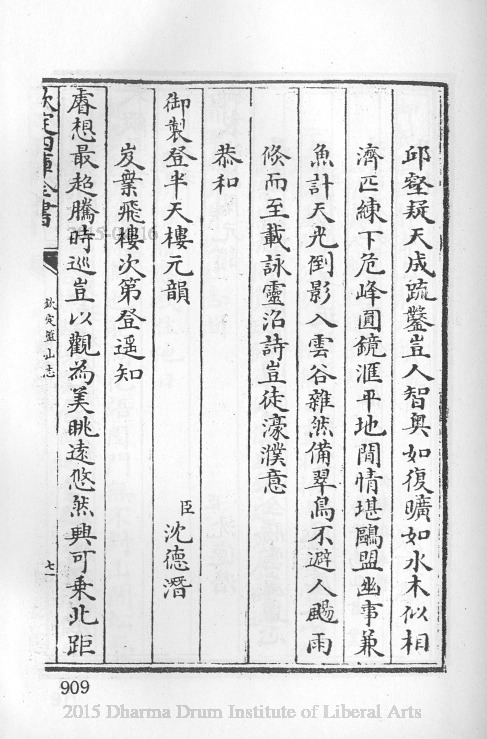 邱壑疑天成疏鑿豈人智奧如復曠如水木似相
濟匹練下危峰圓鏡滙平地閒情堪鷗盟幽事兼
魚計天光倒影入雲谷雜然備翠鳥不避人颺雨
倐而至載詠靈沼詩豈徒濠濮意
恭和
御製登半天樓元韻
臣沈德潛
岌嶪飛樓次第登遥知
睿想最超騰時巡豈以觀為美眺遠悠然興可乗北距
欽定四庫全書
欽定盤山志
七
909
2015 Dharma Drum Institute of Liberal Arts